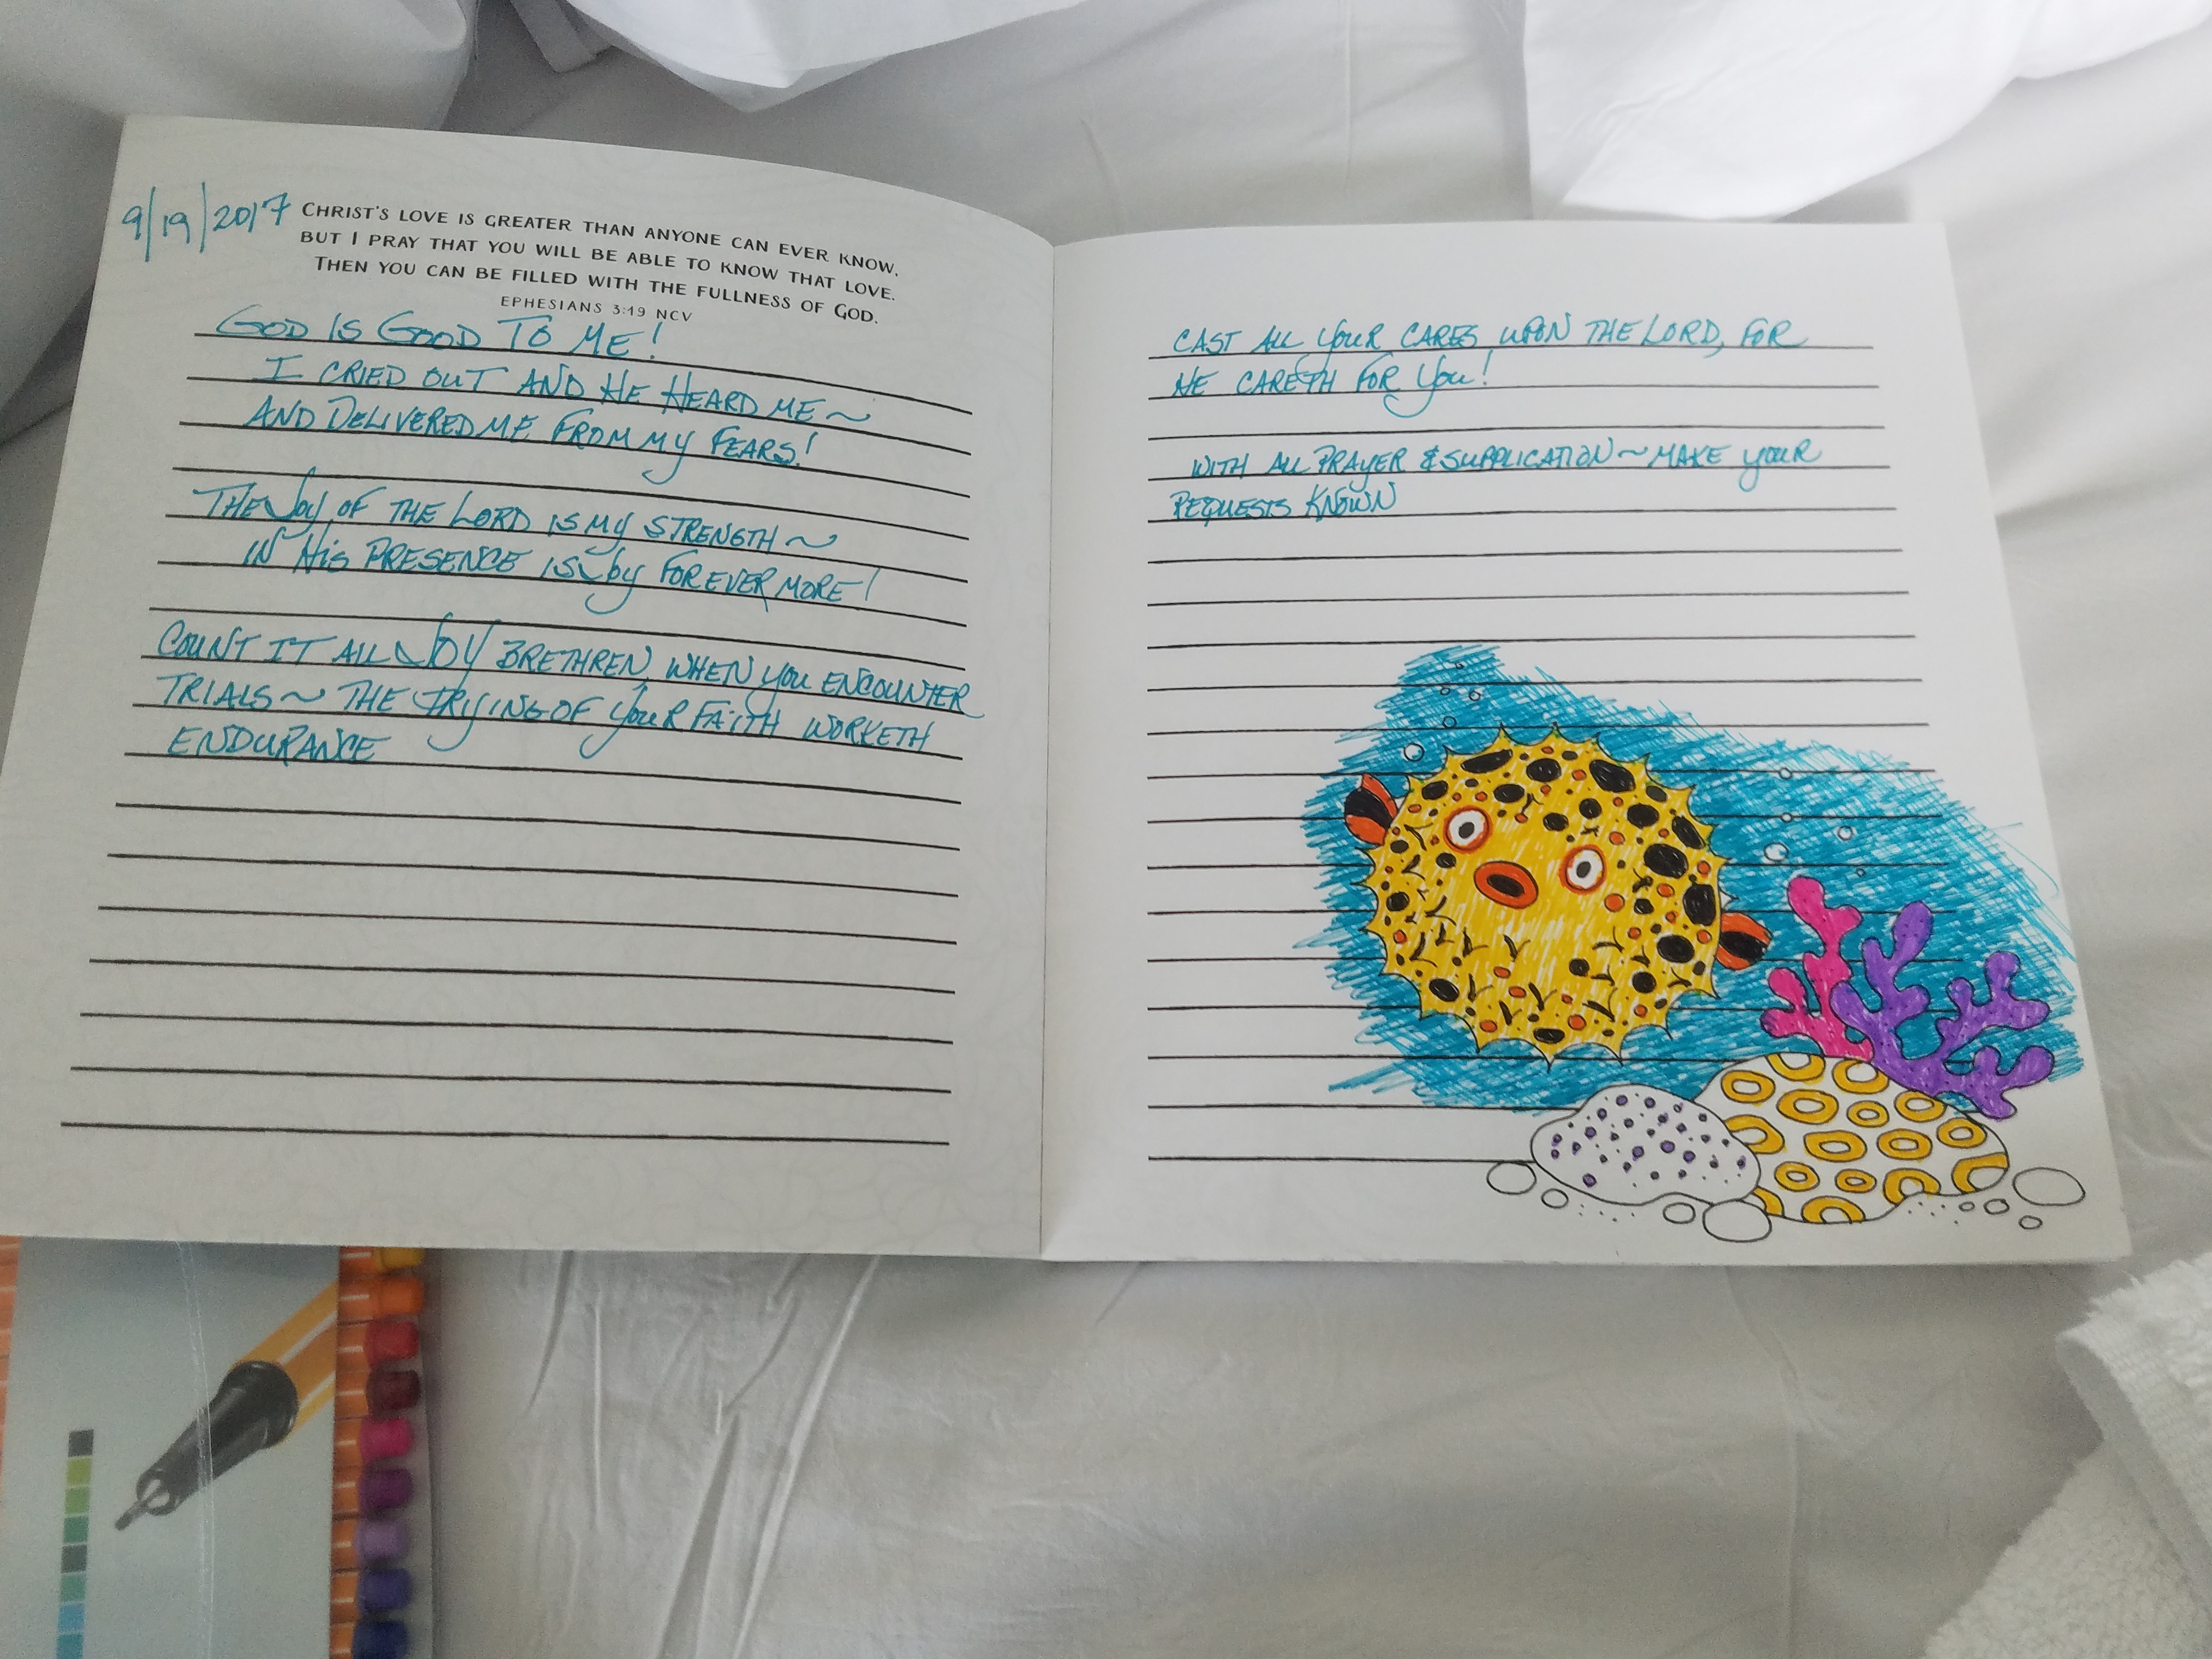 9/19/2017
CHRIST'S LOVE IS GREATER THAN ANYONE CAN EVER KNOW,
BUT I PRAY THAT YOU WILL BE ABLE TO KNOW THAT LOVE.
THEN YOU CAN BE FILLED WITH THE FULLNESS OF GOD.
EPHESIANS 3:19 NCV
GOD IS GOOD TO ME!
I CRIED OUT AND HE HEARD ME ~
AND DELIVERED ME FROM MY FEARS!
THE JOY OF THE LORD IS MY STRENGTH ~
IN HIS PRESENCE IS JOY FOREVER MORE!
COUNT IT ALL JOY BRETHREN, WHEN YOU ENCOUNTER
TRIALS ~ THE TRYING OF YOUR FAITH WORKETH
ENDURANCE
CAST ALL YOUR CARES UPON THE LORD, FOR
HE CARETH FOR YOU!
WITH ALL PRAYER & SUPPLICATION ~ MAKE YOUR
REQUESTS KNOWN